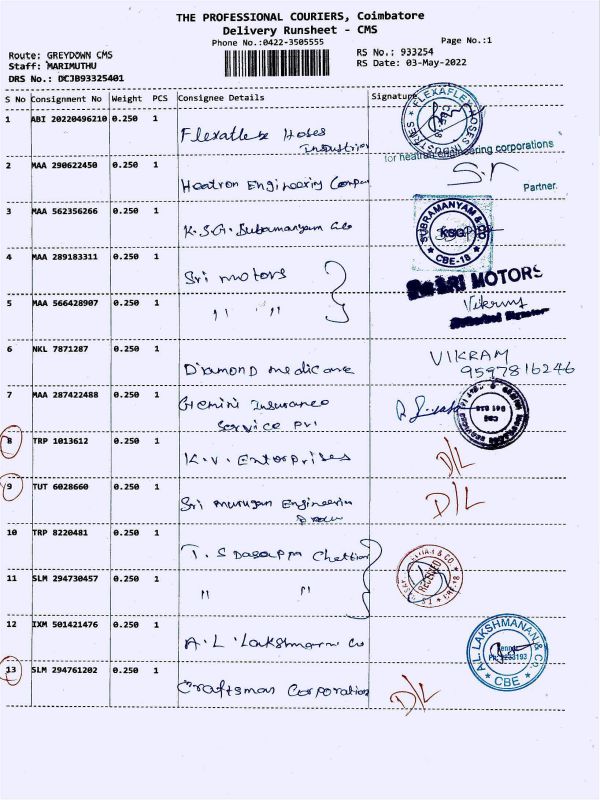 THE PROFESSIONAL COURIERS, Coimbatore
Delivery Runsheet - CMS
Phone No.:0422-3505555 Page No.:1
Route: GREYDOWN CMS RS No.: 933254
Staff: MARIMUTHU RS Date: 03-May-2022
DRS No.: DCJB93325401
S No Consignment No Weight PCS Consignee Details Signature
1 ABI 20220496210 0.250 1 Flexaflex Hoses
Industries
FLEXAFLEX HOSES INDUSTRIES
for heatron engineering corporations
2 MAA 290622450 0.250 1 Heatron Engineering
Partner.
3 MAA 562356266 0.250 1 K.S.G. Subramanyam &Co
SUBRAMANYAM & CO. KSG CBE-18
4 MAA 289183311 0.250 1 Sri motors
SRI MOTORS
5 MAA 566428907 0.250 1 " "
Vikram
6 NKL 7871287 0.250 1 Diamond medicare
VIKRAM
9597816246
7 MAA 287422488 0.250 1 Gemini Insurance
Service Pvt
8 TRP 1013612 0.250 1 K.V. Enterprises D/L
9 TUT 6028660 0.250 1 Sri murugan Engineerin D/L
10 TRP 8220481 0.250 1 T. S Dasappa Chettiar
RECEIVED CBE-18
11 SLM 294730457 0.250 1 " "
12 IXM 501421476 0.250 1 A. L. Lakshmanan Co
A.L. LAKSHMANAN & CO. CBE
13 SLM 294761202 0.250 1 Craftsman Corporation D/L